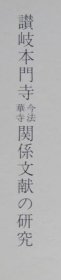 讃岐本門寺今法華寺関係文献の研究